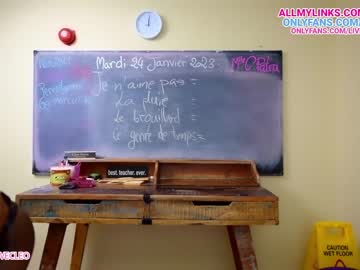 ALLMYLINKS.COM/
ONLYFANS.COM/
ONLYFANS.COM/LIV
Mardi 24 Janvier 2023
Mlle C. Patra
Je n'aime pas =
La pluie =
Le brouillard =
Ce genre de temps =
best. teacher. ever.
CAUTION
WET FLOOR
VECLEO